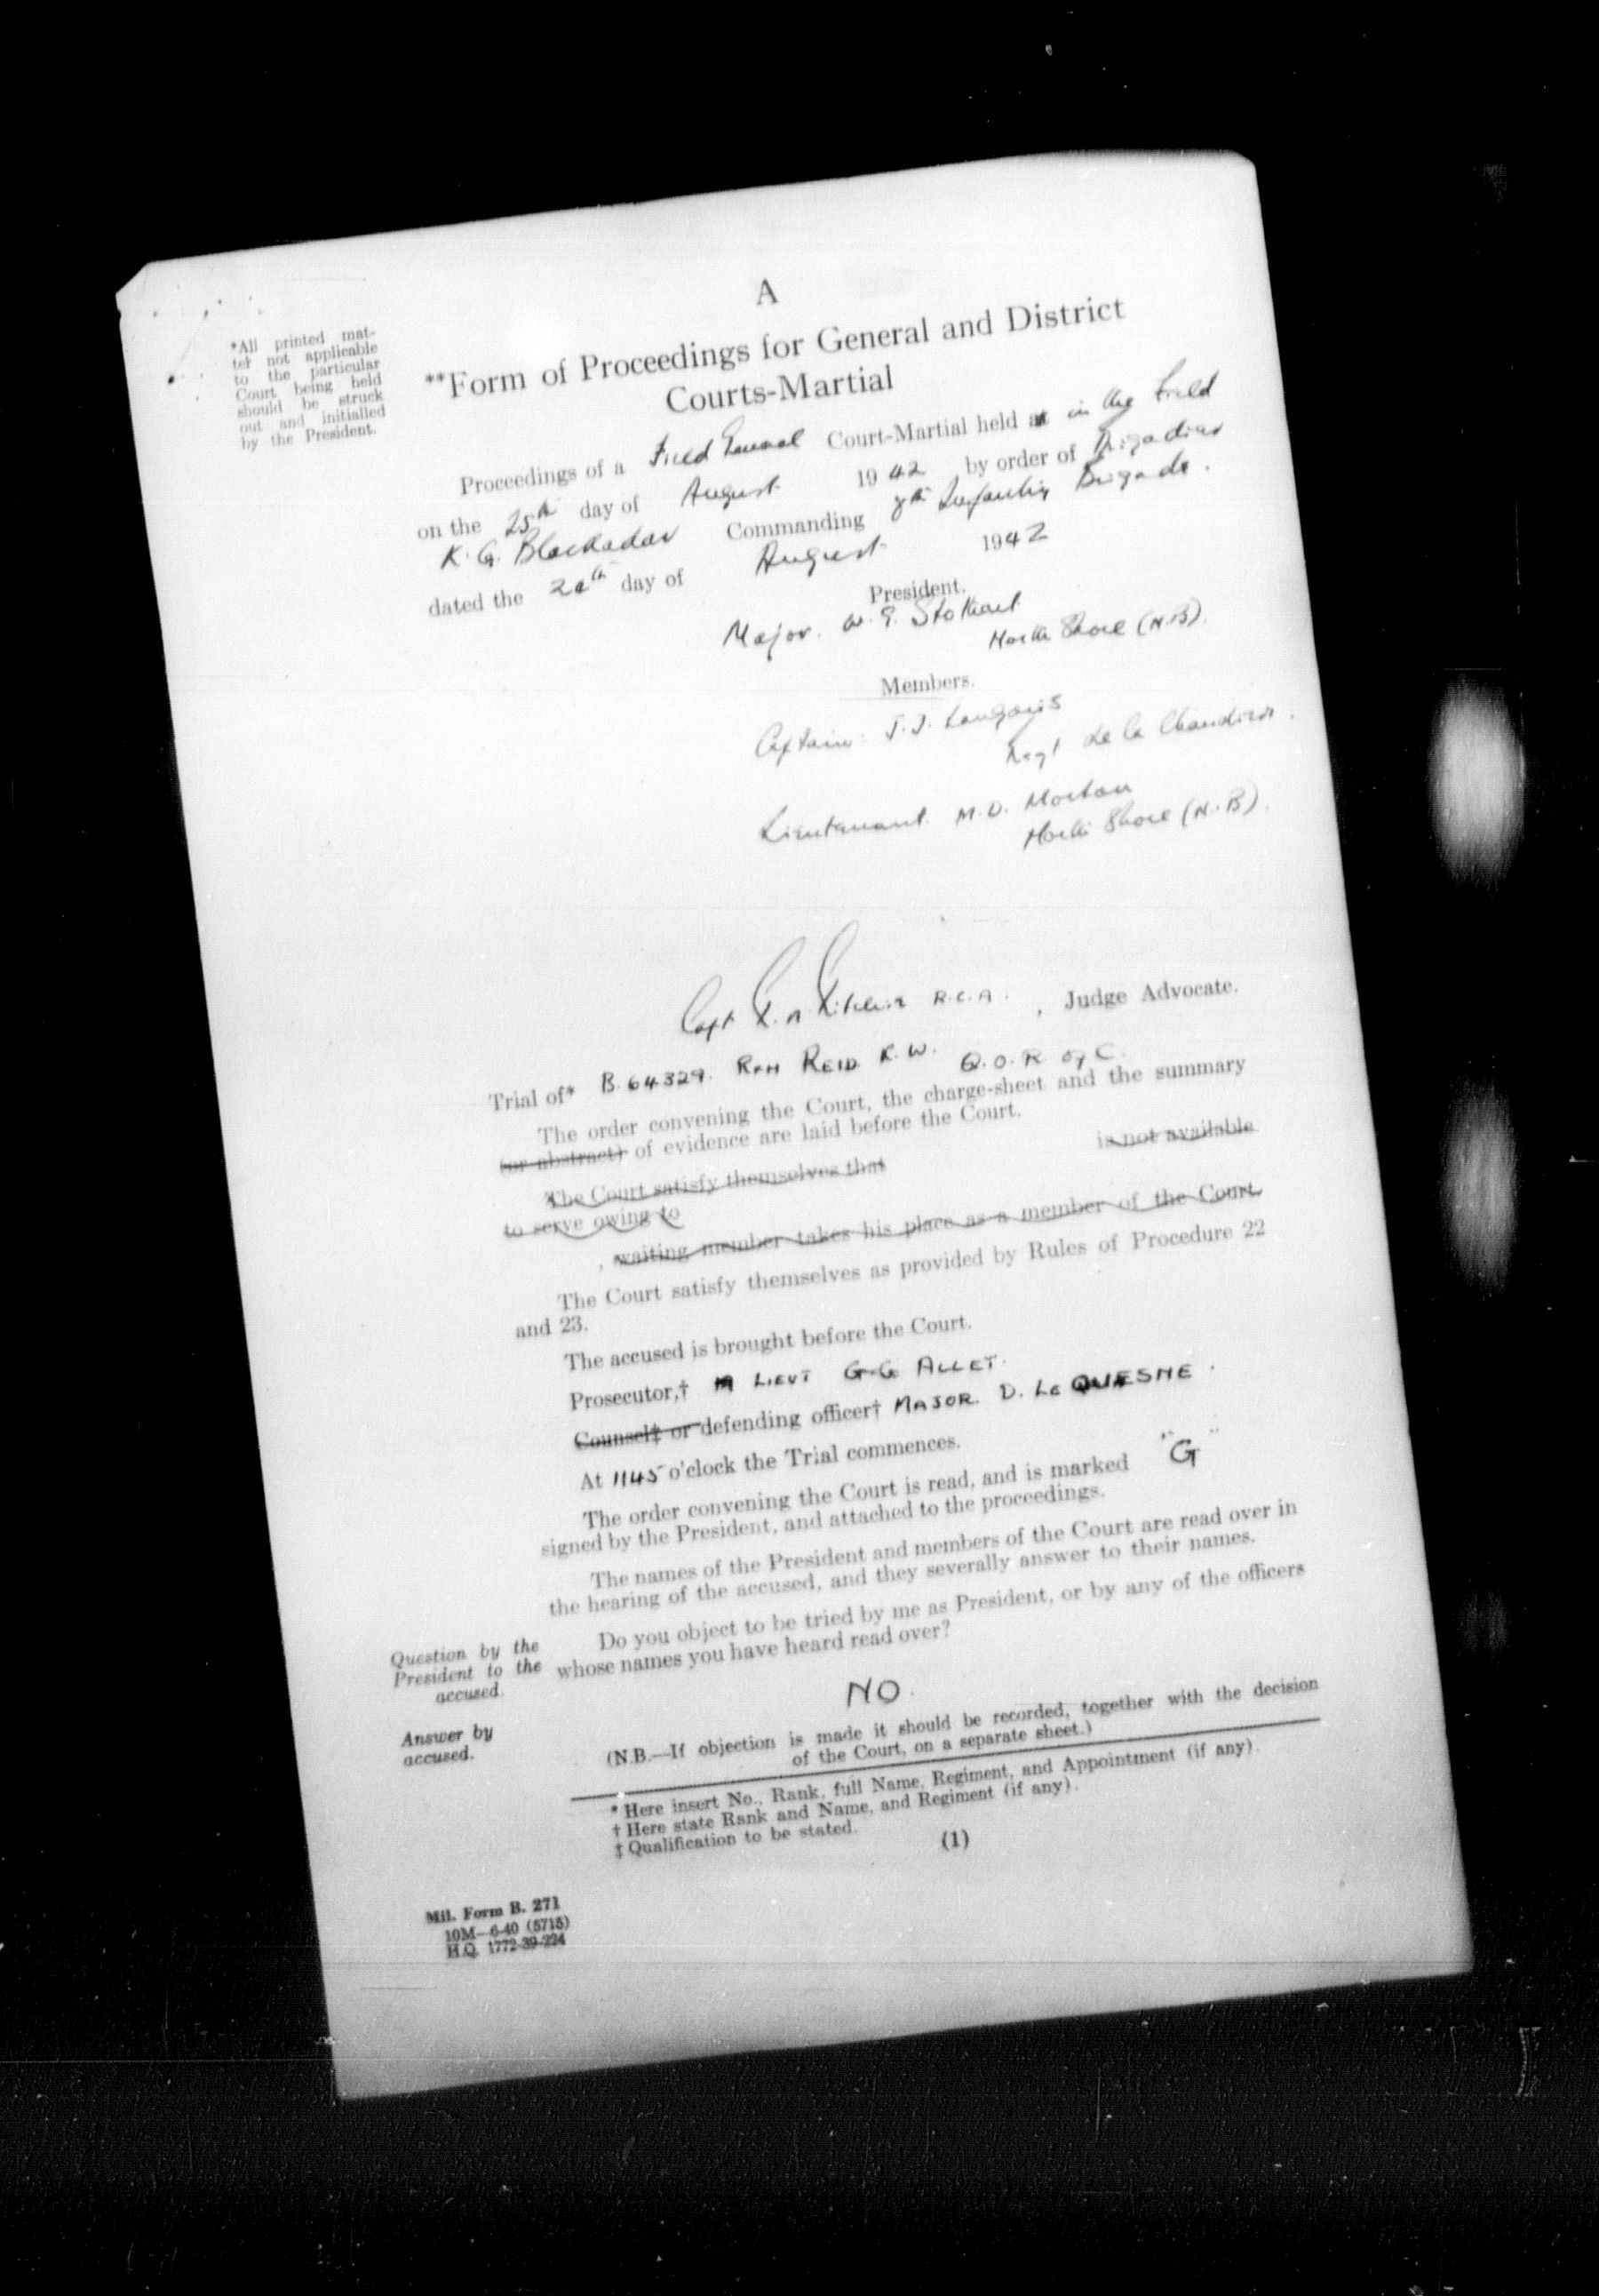 A
*All printed mat-
ter not applicable
to the particular
Court being held
should be struck
out and initialled
by the President.
**Form of Proceedings for General and District
Courts-Martial
Proceedings of a Field General Court-Martial held at in the Field
on the 25th day of August 1942 by order of Brigadier
K. G. Blackader Commanding 8th Infantry Brigade.
dated the day of August 1942
President.
Major. W. E. Stothart
North Shore (N.B).
Members.
Captain J. J. Langois
Regt de la Chaudiere.
Lieutenant. M. D. Morton
North Shore (N.B).
Capt R.C.A. , Judge Advocate.
Trial of* B.64329. Rfn REID. R.W. Q.O.R of C.
The order convening the Court, the charge-sheet and the summary
(or abstract) of evidence are laid before the Court.
The Court satisfy themselves that is not available
to serve owing to
, waiting member takes his place as a member of the Court
The Court satisfy themselves as provided by Rules of Procedure 22
and 23.
The accused is brought before the Court.
Prosecutor,† LIEUT G.G ALLET.
Counsel‡ or defending officer† MAJOR. D. Le QUESNE.
At 1145 o'clock the Trial commences.
The order convening the Court is read, and is marked "G"
signed by the President, and attached to the proceedings.
The names of the President and members of the Court are read over in
the hearing of the accused, and they severally answer to their names.
Question by the
President to the
accused.
Do you object to be tried by me as President, or by any of the officers
whose names you have heard read over?
Answer by
accused.
NO.
(N.B.—If objection is made it should be recorded, together with the decision
of the Court, on a separate sheet.)
* Here insert No., Rank, full Name, Regiment, and Appointment (if any).
† Here state Rank and Name, and Regiment (if any).
‡ Qualification to be stated.
(1)
Mil. Form B. 271
10M—6-40 (5715)
H.Q. 1772-39-224